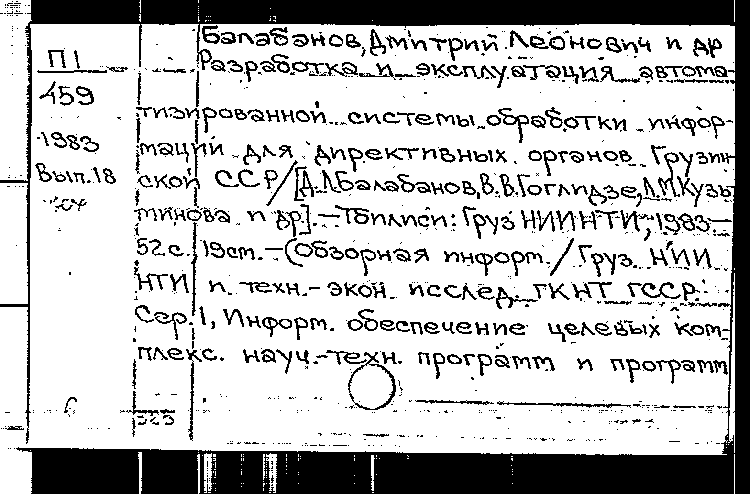 Балабанов, Дмитрий Леонович и др
П1
Разработка и эксплуатация автома-
459
тизированной системы обработки инфор-
1983
мации для директивных органов Грузин
Вып.18
ской ССР/[Д.Л.Балабанов, В.В.Гоглидзе, Л.М.Кузь
минова и др.].—Тбилиси: ГрузНИИНТИ, 1983—
52с., 19см.—(Обзорная информ./Груз НИИ
НТИ и техн.-экон. исслед. ГКНТ ГССР.
Сер.1, Информ. обеспечение целевых ком-
плекс. науч.-техн. программ и программ
6
323